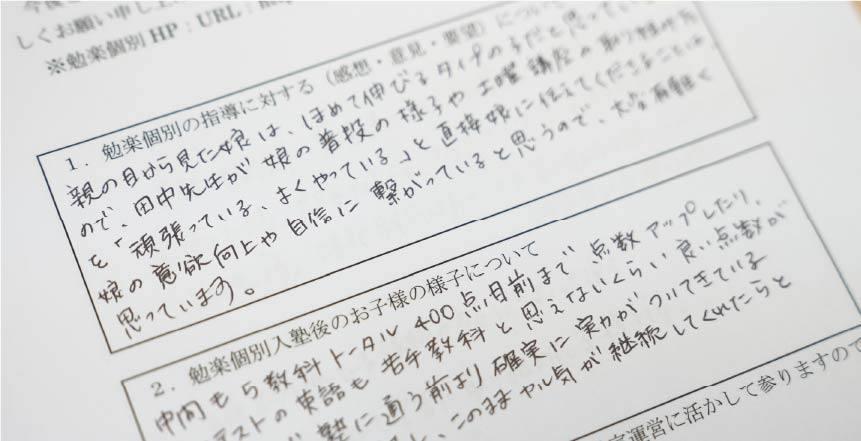 今後と
しくお願い申し上
※勉楽個別HP：URL：
1．勉楽個別の指導に対する（感想・意見・要望）について
親の目から見た娘は、ほめて伸びるタイプの子だと思っている
ので、田中先生が娘の普段の様子や土曜講座の取り組み方
を「頑張っている、よくやっている」と直接娘に伝えてくださることは、
娘の意欲向上や自信に繋がっていると思うので、大変有難く
思っています。
2．勉楽個別入塾後のお子様の様子について
中間も5教科トータル400点目前まで点数アップしたり、
テストの英語も苦手教科と思えないくらい良い点数が
塾に通う前より確実に実力がついてきている
このままやる気が継続してくれたらと
運営に活かして参りますので